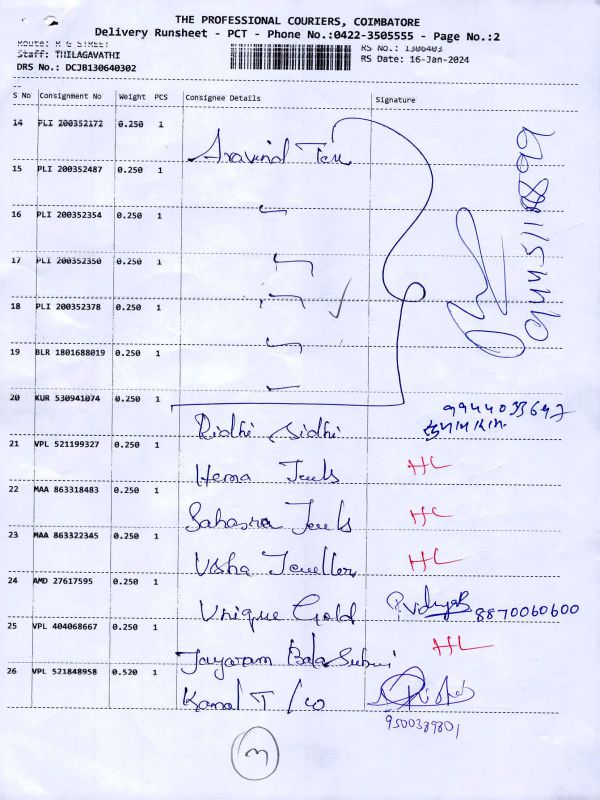 THE PROFESSIONAL COURIERS, COIMBATORE
Delivery Runsheet - PCT - Phone No.:0422-3505555 - Page No.:2
Route: R G STREET
Staff: THILAGAVATHI
DRS No.: DCJB130640302
RS No.: 1306403
RS Date: 16-Jan-2024
S No Consignment No Weight PCS Consignee Details Signature
14 PLI 200352172 0.250 1 Aravind
15 PLI 200352487 0.250 1
16 PLI 200352354 0.250 1
17 PLI 200352350 0.250 1
18 PLI 200352378 0.250 1
19 BLR 1801688019 0.250 1
20 KUR 530941074 0.250 1 Ridhi Sidhi
21 VPL 521199327 0.250 1 Hema Jewels HL
22 MAA 863318483 0.250 1 Sahasra Jewels HL
23 MAA 863322345 0.250 1 Usha Jewellers HL
24 AMD 27617595 0.250 1 Unique Gold P. Vidya 8870060600
25 VPL 404068667 0.250 1 Jayaram Bala HL
26 VPL 521848958 0.520 1 Kamal T / co
3